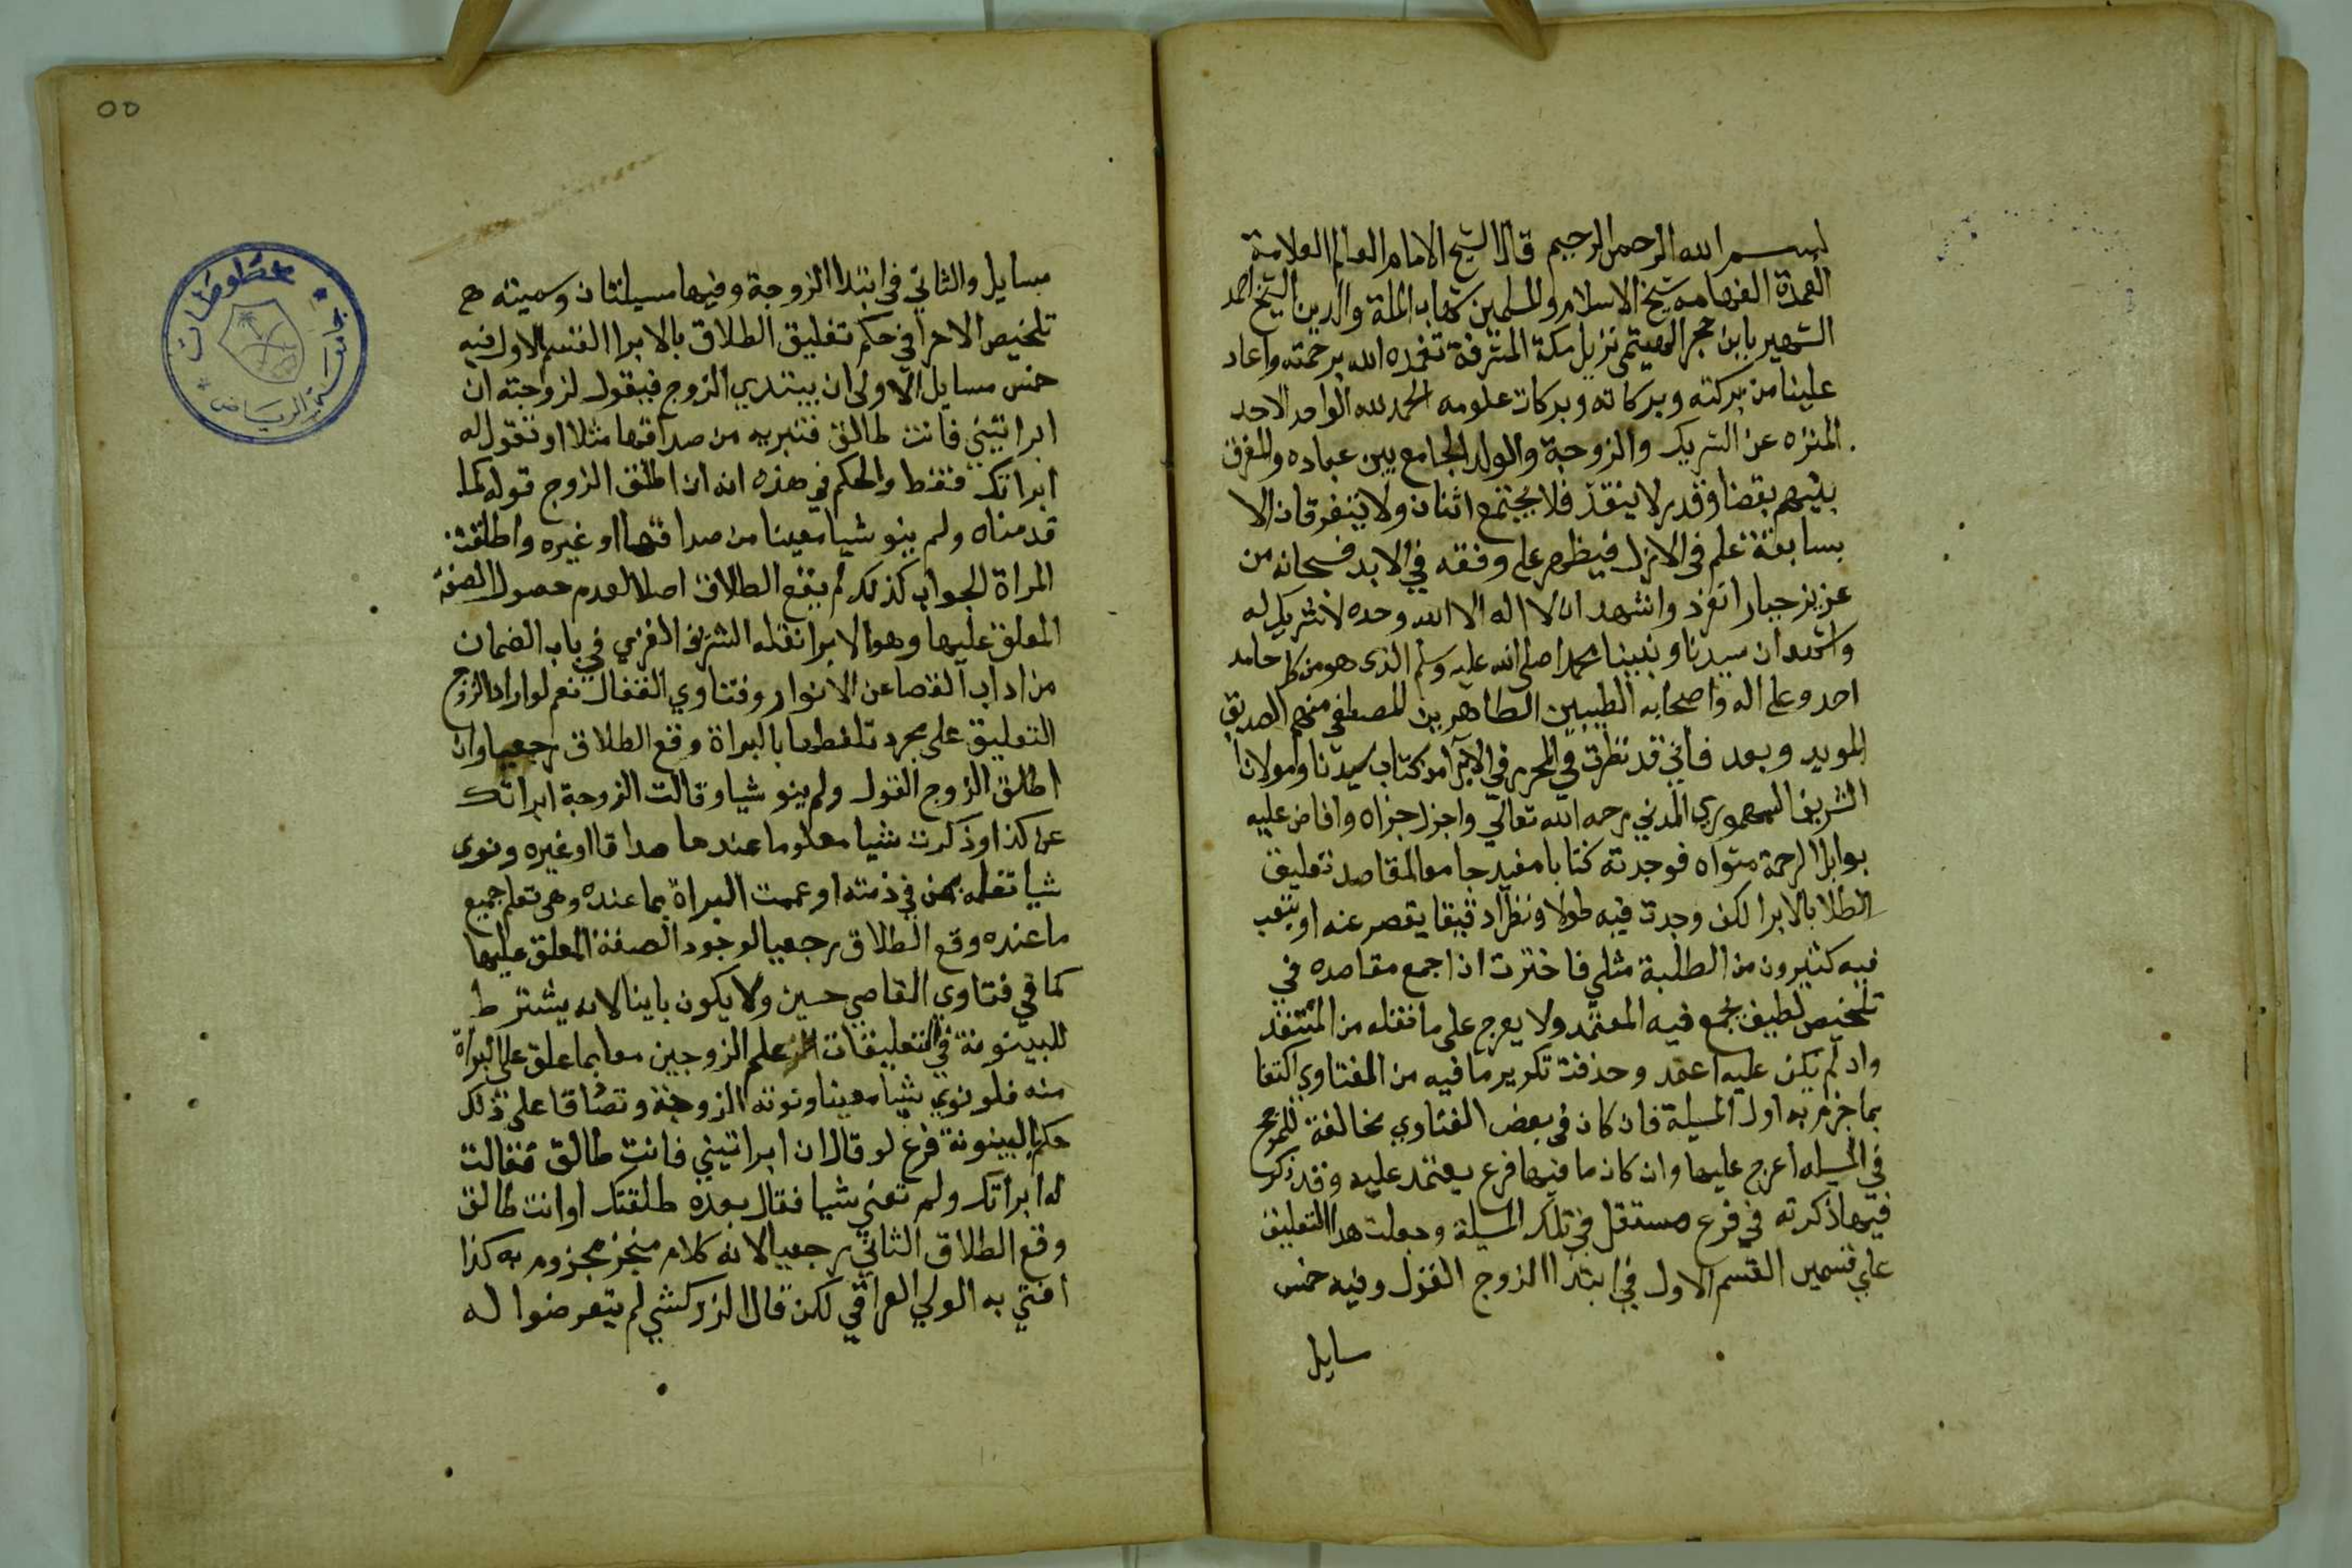 بسم الله الرحمن الرحيم قال الشيخ الامام العالم العلامة
العمدة الفهامه شيخ الاسلام والمسلمين شهاب الملة والدين الشيخ احمد
الشهير بابن حجر الهيتمي نزيل مكة المشرفة تغمده الله برحمته واعاد
علينا من بركته وبركاته وبركات علومه الحمد لله الواحد الاحد
المنزه عن الشريك والزوجة والولد الجامع بين عباده والمفرق
بينهم بقضا وقدر لا ينفذ فلا يجتمع اثنان ولا يتفرقان الا
بسابقة علم في الازل فيظهر على وفقه في الابد فسبحانه من
عزيز جبار انفرد واشهد ان لا اله الا الله وحده لا شريك له
واشهد ان سيدنا ونبينا محمدا صلى الله عليه وسلم الذى هو من كل حامد
احمد وعلى اله واصحابه الطيبين الطاهرين المصطفى منهم الصديق
المويد وبعد فاني قد نظرت في المحرر في الابرا من كتاب سيدنا ومولانا
الشريف السمهوري المدني رحمه الله تعالى واجزل جزاه وافاض عليه
بوابل الرحمة متواه فوجدته كتابا مفيد جامع المقاصد تعليق
الطلا بالابرا لكن وجدت فيه طولا ونظرا دقيقا يقصر عنه او يتعب
فيه كثيرون من الطلبة مثلي فاخترت ان اجمع مقاصده في
تلخيص لطيف يجمع فيه المعتمد ولا يعرج على ما نقله من المنتقد
واذ لم يكن عليه اعتمد وحذفت تكرير ما فيه من الفتاوي اكتفا
بما جزم به اول المسيلة فان كان في بعض الفتاوي مخالفة للمرجح
في المسيله اعرج عليها وان كان ما فيها فرع يعتمد عليه وقد ذكر
فيها ذكرته في فرع مستقل في تلك المسيلة وجعلت هدا التعليق
علي قسمين القسم الاول في ابتدا الزوج القول وفيه خمس
سايل
٥٥
مسايل والثاني في ابتدا الزوجة وفيها مسيلتان وسميته
تلخيص الاحرا في حكم تعليق الطلاق بالابرا القسم الاول فيه
خمس مسايل الاولى ان يبتدي الزوج فيقول لزوجته ان
ابراتيني فانت طالق فتبريه من صداقها مثلا او تقول له
ابراتك فقط والحكم في هذه انه ان اطلق الزوج قوله كما
قدمناه ولم ينو شيا معينا من صداقها او غيره واطلقت
المراة الجواب كذلك لم يقع الطلاق اصلا لعدم حصول الصفة
المعلق عليها وهو الابرا نقله الشرف الغزي في باب الضمان
من اداب القضا عن الانوار وفتاوي القفال نعم لو اراد الزوج
التعليق على مجرد تلفظها بالبراة وقع الطلاق رجعيا وان
اطلق الزوج القول ولم ينو شيا وقالت الزوجة ابراتك
عن كذا وذكرت شيا معلوما عندها صداقا او غيره ونوى
شيا تعلمه في ذمته او عممت البراة بما عنده وهى تعلم جميع
ما عنده وقع الطلاق رجعيا لوجود الصفة المعلق عليها
كما في فتاوي القاضي حسين ولا يكون باينا لانه يشترط
للبينونة في التعليقات علم الزوجين معا بما علق على البراة
منه فلو نوي شيا معينا ونوته الزوجة وتصادقا على ذلك
حكم بالبينونة فرع لو قال ان ابراتيني فانت طالق فقالت
له ابراتك ولم تعني شيا فقال بعده طلقتك او انت طالق
وقع الطلاق الثاني رجعيا لانه كلام منجز مجزوم به كذا
افتي به الولي العراقي لكن قال الزركشي لم يتعرضوا له